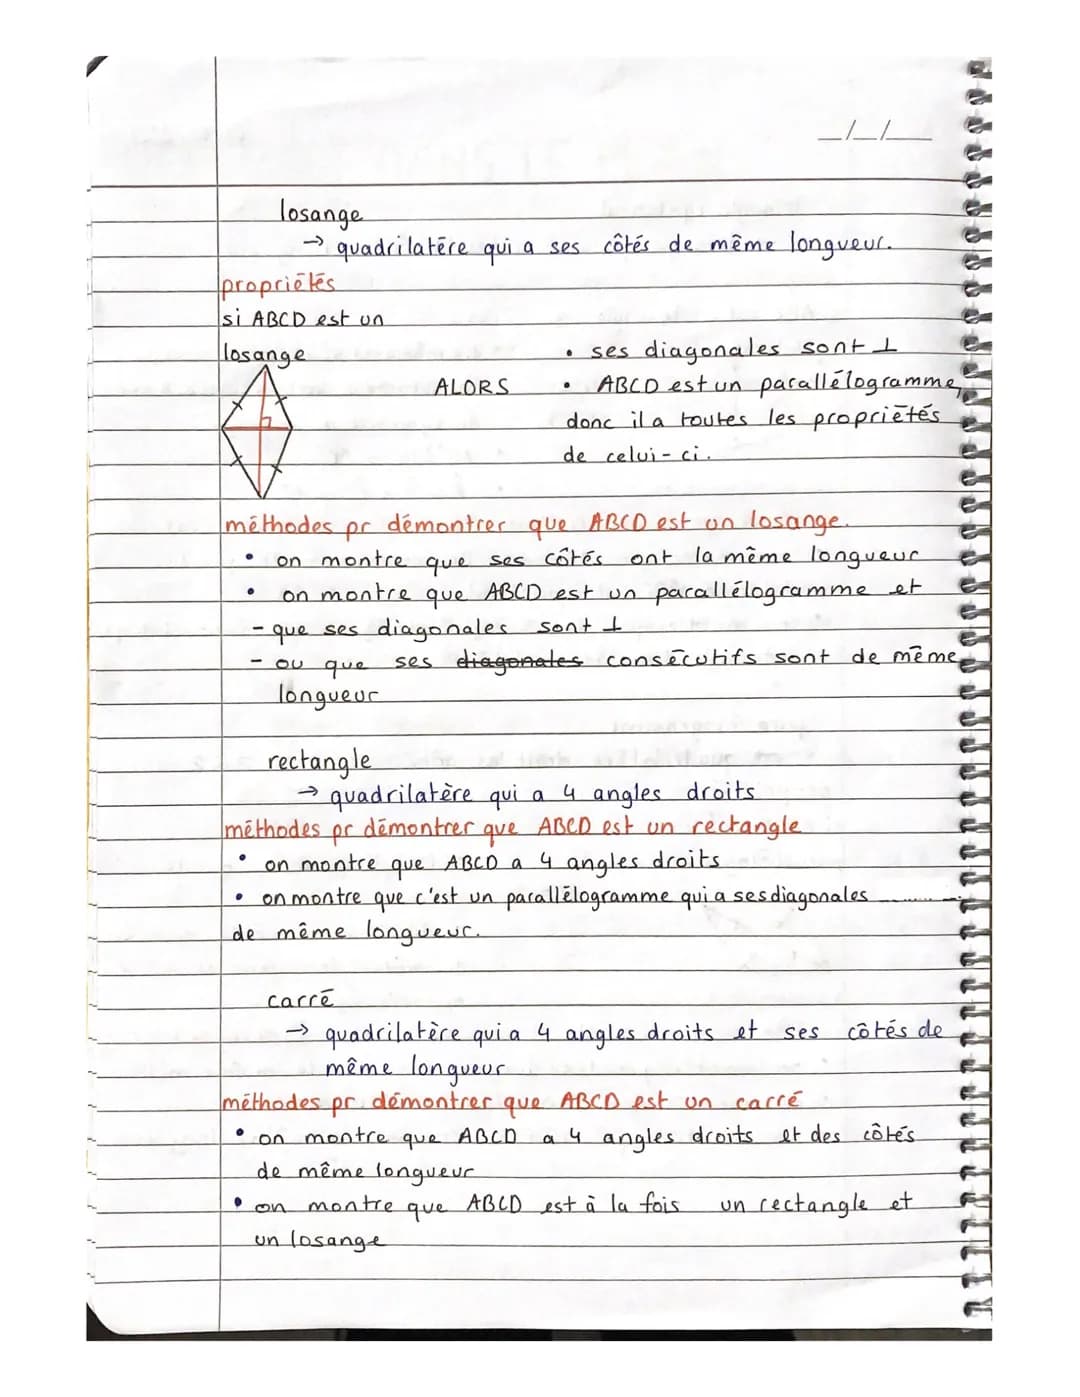 _/_/_
losange
→ quadrilatère qui a ses côtés de même longueur.
propriétés
si ABCD est un
losange
• ses diagonales sont ⊥
ALORS • ABCD est un parallélogramme,
donc il a toutes les propriétés
de celui-ci.
méthodes pr démontrer que ABCD est un losange.
• on montre que ses côtés ont la même longueur
• on montre que ABCD est un parallélogramme et
- que ses diagonales sont ⊥
- ou que ses diagonales consécutifs sont de même
longueur
rectangle
→ quadrilatère qui a 4 angles droits
méthodes pr démontrer que ABCD est un rectangle
• on montre que ABCD a 4 angles droits
• on montre que c'est un parallélogramme qui a ses diagonales
de même longueur.
carré
→ quadrilatère qui a 4 angles droits et ses côtés de
même longueur
méthodes pr démontrer que ABCD est un carré
• on montre que ABCD a 4 angles droits et des côtés
de même longueur
• on montre que ABCD est à la fois un rectangle et
un losange